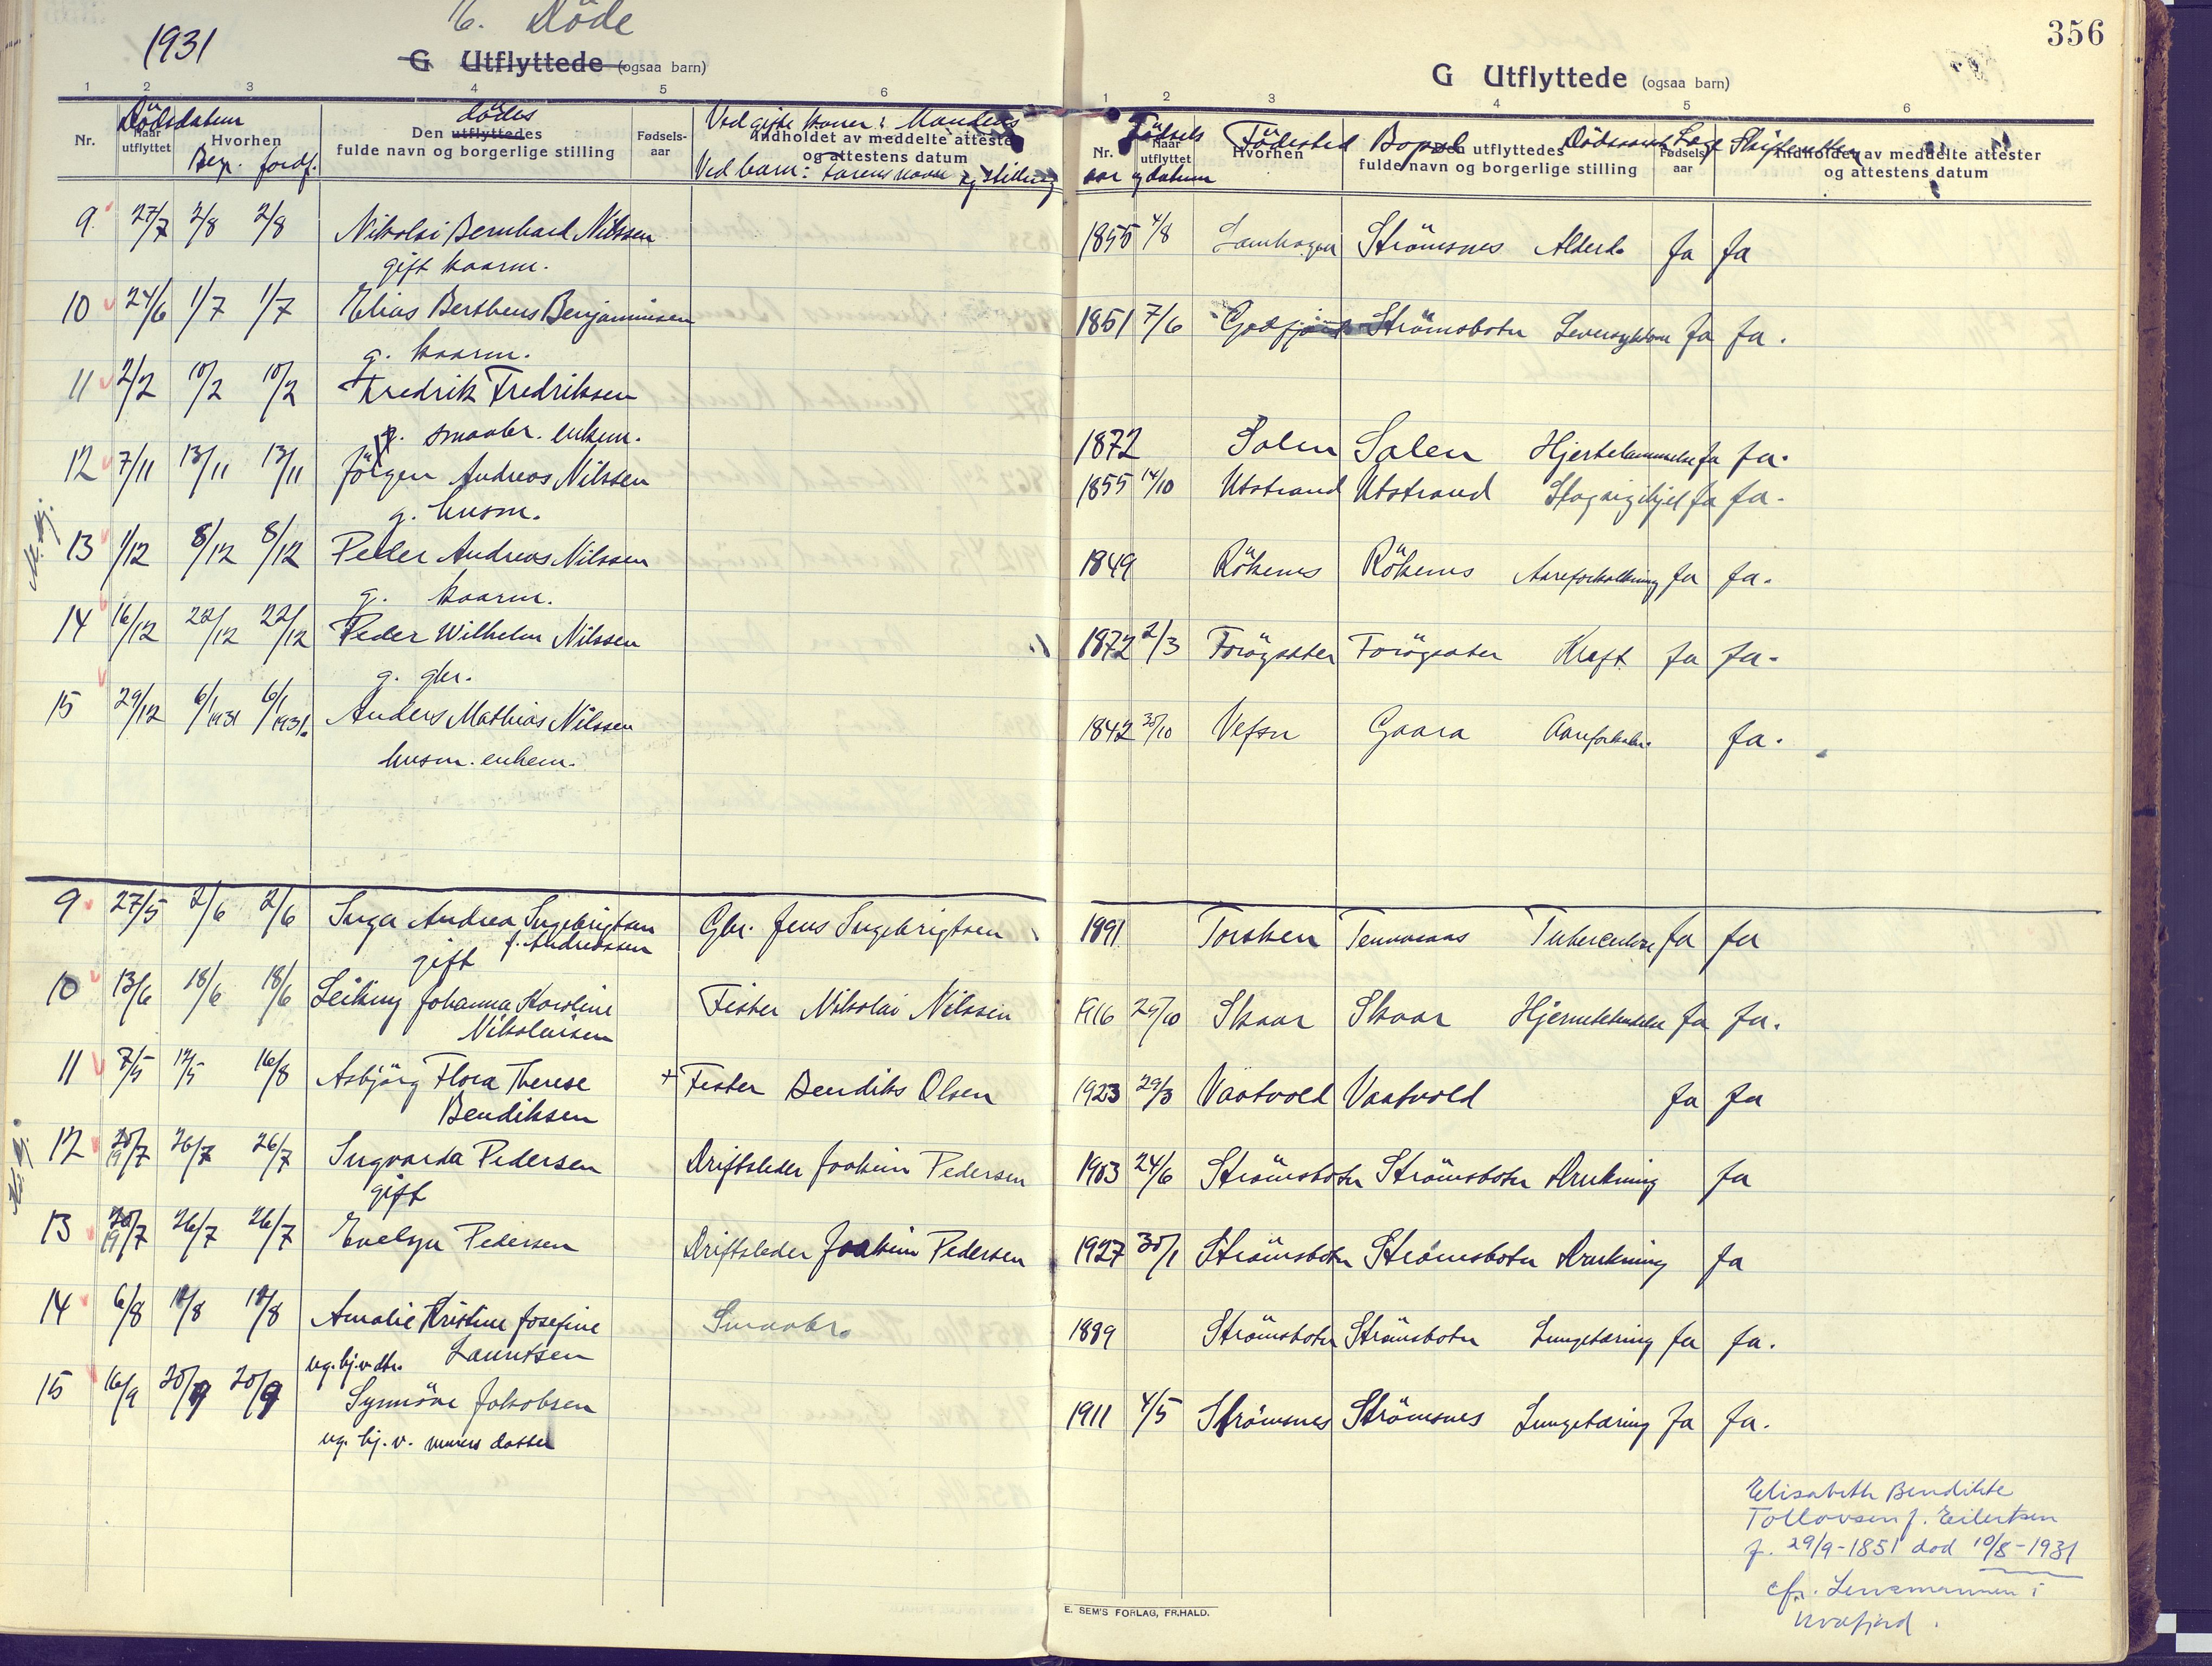 1931
E. Döde
G Utflyttede (ogsaa barn)
1 2 3 4 5 6
Nr. Dödsdatum Naar utflyttet Hvorhen Beg. Jordf.
dödes
Den utflyttedes fulde navn og borgerlige stilling
Fødsels-aar
Ved gifte koner: Mandens
Indholdet av meddelte attester og attestens datum
Ved barn: Farens navn og stilling
9 27/7 2/8 2/8 Nikolai Bernhard Nilssen
gift kaarm.
10 24/6 1/7 1/7 Elias Bertheus Benjaminsen
g. kaarm.
11 2/2 10/2 10/2 Fredrik Fredriksen
smaabr. enkem.
12 7/11 13/11 13/11 Jörgen Andreas Nilssen
g. husm.
M. kj.
13 1/12 8/12 8/12 Peder Andreas Nilssen
g. kaarm.
14 16/12 22/12 22/12 Peder Wilhelm Nilssen
g. gbr.
15 29/12 6/1 1931 6/1 1931. Anders Mathias Nilssen
husm. enkem.
9 27/5 2/6 2/6 Inga Andrea Ingebrigtsen Gbr. Jens Ingebrigtsen
gift f. Andreassen
10 13/6 18/6 18/6 Johanna Karoline Fisker Nikolai Nilssen
Nikolaisen
11 7/5 12/5 16/8 Asbjörg Flora Therese + Fisker Bendiks Olsen
Bendiksen
K. kj.
12 20/7 19 26/7 26/7 Ingvarda Pedersen Driftsleder Joakim Pedersen
gift
13 20/7 19 26/7 26/7 Evelyn Pedersen Driftsleder Joakim Pedersen
14 6/8 12/8 12/8 Amalie Kristine Josefine Smaabr.
ug. hj.v. dtr. Lauritsen
15 16/9 20/9 20/9 Synnöve Jakobsen
ug. hj. v. murers datter
356
G Utflyttede (ogsaa barn)
1 2 3 4 5 6
Nr. Födsels aar og datum Naar utflyttet
Födested Hvorhen
Bopæl Den utflyttedes fulde navn og borgerlige stilling
Dödsaarsak
Læge Fødsels-aar
Skifteretten Indholdet av meddelte attester og attestens datum
1855 4/8 Strömsnes Alderd. Ja Ja
1851 7/6 Godfjord Strömsbotn Leversykdom Ja Ja.
1872 Salen Salen Hjertelammelse Ja Ja.
1855 14/10 Utstrand Utstrand Slag Ja Ja.
1849 Rökenes Rökenes Aareforkalkning Ja Ja.
1872 2/3 Foröysæter Foröysæter Kræft Ja Ja.
1842 30/10 Vefsn Gaara Aareforkalkn. Ja.
1891 Torsken Tennevaas Tuberculose Ja Ja
1916 29/10 Skaar Skaar Hjernebetændelse Ja Ja.
1923 29/3 Vaatvold Vaatvold Ja Ja
1903 24/6 Strömsbotn Strömsbotn Drukning Ja
1927 30/1 Strömsbotn Strömsbotn Drukning Ja
1889 Strömsbotn Strömsbotn Lungetæring Ja Ja.
1911 4/5 Strömsnes Strömsnes Lungetæring Ja Ja.
Elisabeth Bendikte
Tollavsen f. Eilertsen
f. 29/9-1851 død 10/8-1931
cfr. Lensmannen i
Kvæfjord.
E. SEM'S FORLAG, FR.HALD.